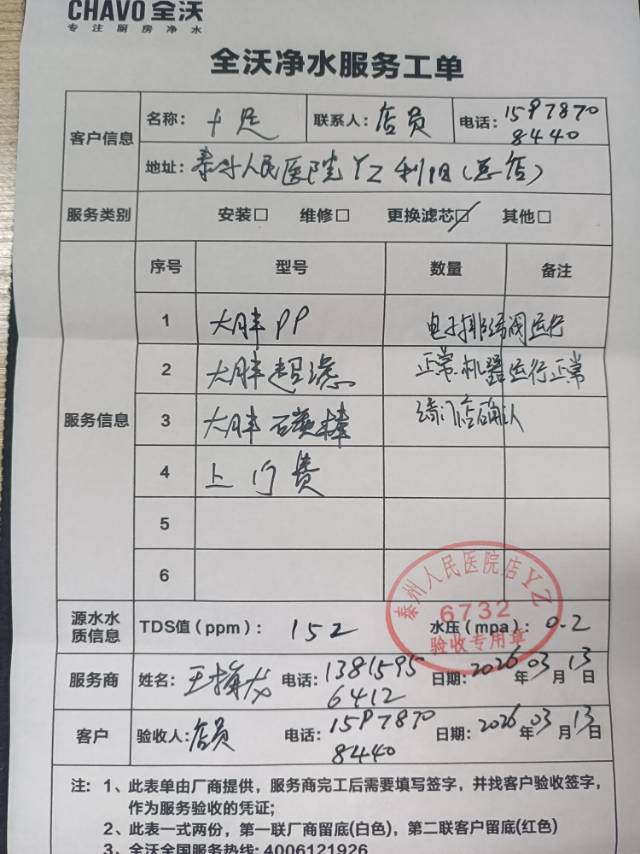 CHAVO 全沃
专注厨房净水
全沃净水服务工单
客户信息
名称: 十足 联系人: 店员 电话: 15978708440
地址: 泰州人民医院YZ
服务类别 安装□ 维修□ 更换滤芯☑ 其他□
服务信息
序号 型号 数量 备注
1 大胖PP 电子排污阀运行
2 大胖超滤 正常.机器运行正常
3 大胖碳棒 请门店确认
4 上门费
5
6
泰州人民医院店YZ
6732
验收专用章
源水水质信息 TDS值(ppm): 152 水压(mpa): 0.2
服务商 姓名: 王 电话: 13815956412 日期: 2026年03月13日
客户 验收人: 店员 电话: 15978708440 日期: 2026年03月13日
注: 1、此表单由厂商提供，服务商完工后需要填写签字，并找客户验收签字，
作为服务验收的凭证;
2、此表一式两份，第一联厂商留底(白色)，第二联客户留底(红色)
3、全沃全国服务热线: 4006121926